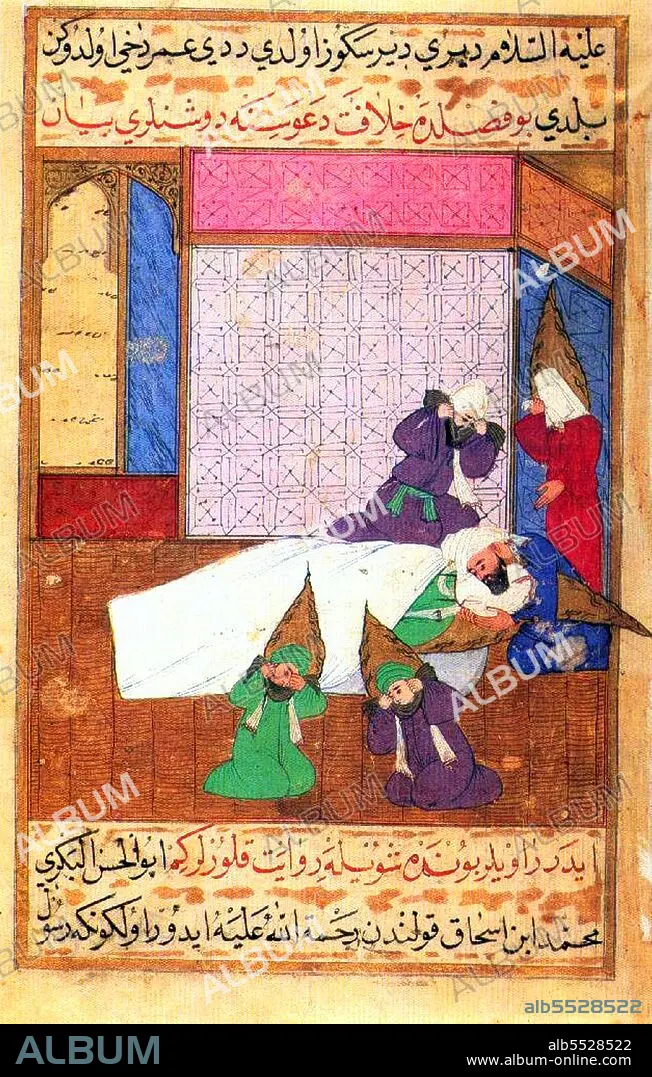 عليه السلام ديري دير سكوز اولدي ديدي عمر دخي اولدوكن
بلدي بو فصلده خلافت دعوسنه دوشدلري بيان
ايدر راويلر بونده شويله روايت قلورلر كم ابو الحسن البكري
محمد ابن اسحاق قولندن رحمة الله عليه ايدور اول كونكه رسول
ALBUM
alb5528522
ALBUM
alb5528522
www.album-online.com